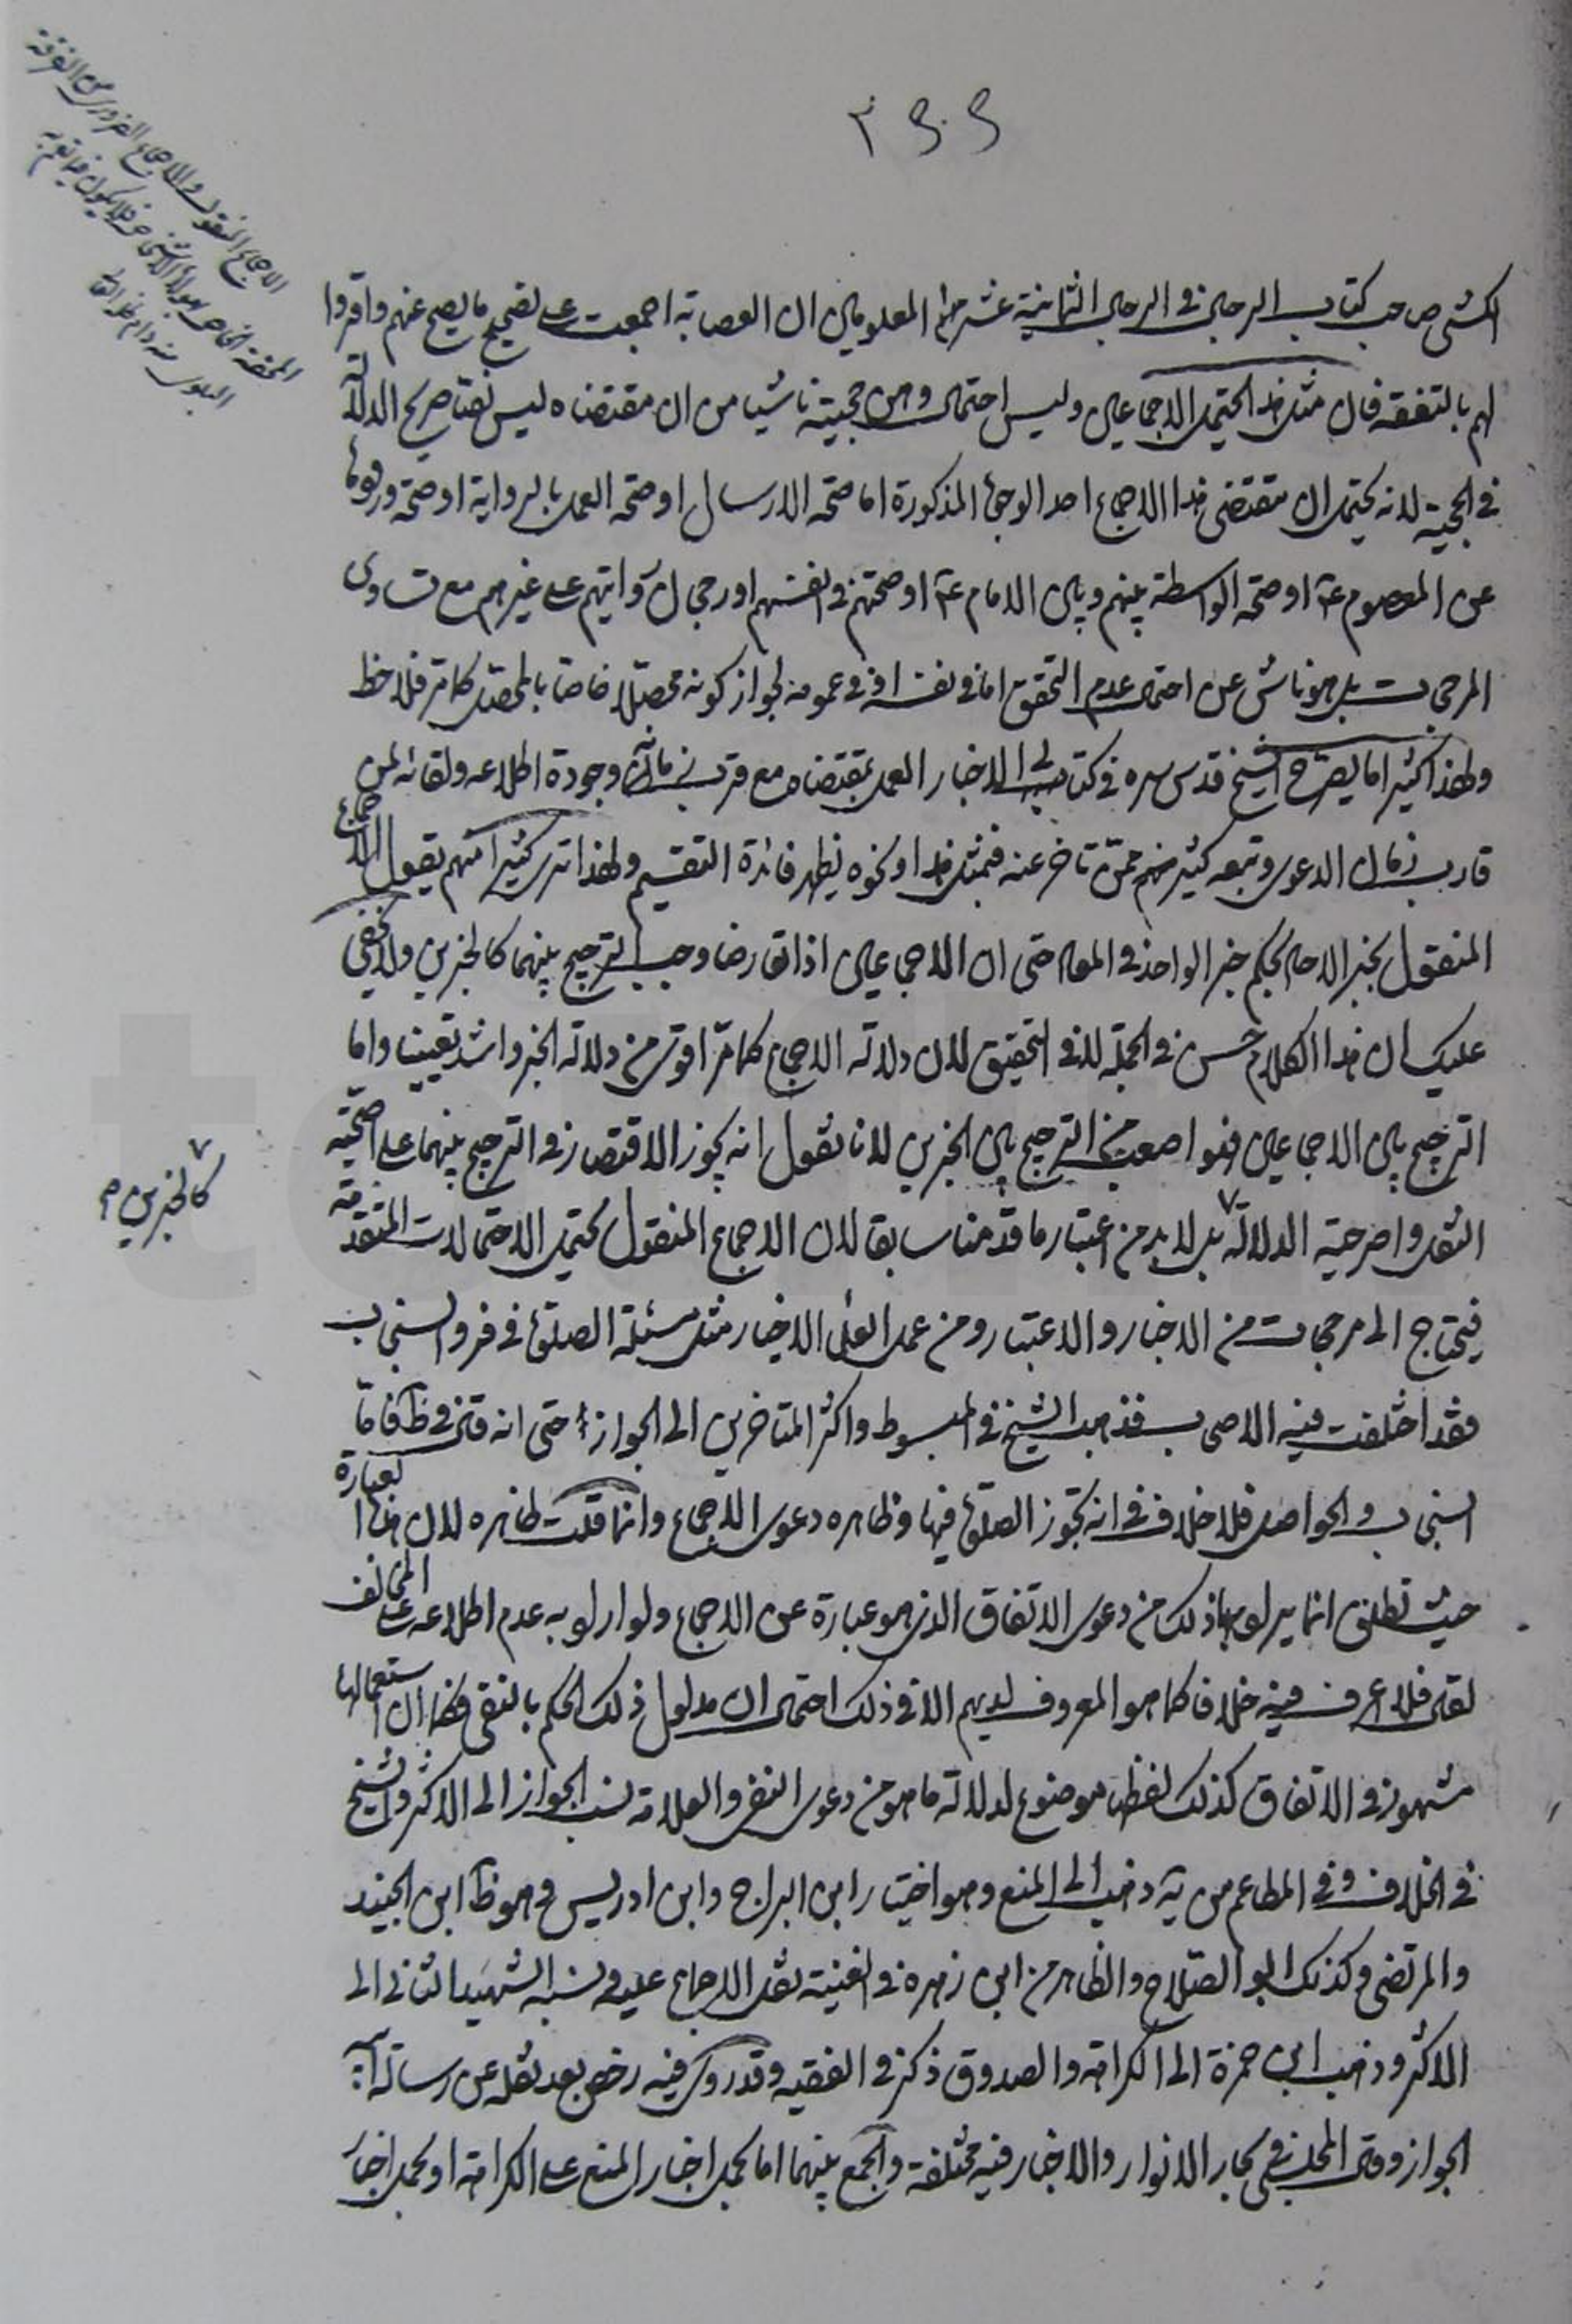 الكشى صاحب كتاب الرجال فى الرجال الثمانية عشر المعلومين ان العصابة اجمعت على تصحيح ما يصح عنهم واقروا
لهم بالتفقه فان مثل هذا يحتمل الاجماعين وليس احتمال وهن حجيته ناشيا من ان مقتضاه ليس نصا صريح الدلالة
فى الحجية لانه يحتمل ان مقتضى هذا الاجماع احد الوجوه المذكورة اما صحة الارسال او صحة العمل بالرواية او صحة ورودها
عن المعصوم ع او صحة الواسطة بينهم وبين الامام ع او صحتهم فى انفسهم او رجحان روايتهم على غيرهم مع تساوى
المرجحات بل هو ناش عن احتمال عدم التحقق اما فى نفسه او فى عمومه لجواز كونه محصلا خاصا بالمحصل كما مر فلاحظ
ولهذا كثيرا ما يصرح الشيخ قدس سره فى كتابى الاخبار العمل بمقتضاه مع قرب زمانه وجودة اطلاعه ولقائه لمن
قارب زمان الدعوى وتبعه كثير منهم ممن تاخر عنه فبمثل هذا ونحوه يظهر فائدة التقسيم ولهذا ترى كثيرا منهم يقول الاجماع
المنقول بخبر الاحاد بحكم خبر الواحد فى المعنى حتى ان الاجماعين اذا تعارضا وجب الترجيح بينهما كالخبرين ولا يخفى
عليك ان هذا الكلام حسن فى الجملة لا فى التحقيق لان دلالة الاجماع كما مر اقوى من دلالة الخبر واشد تعيينا واما
الترجيح بين الاجماعين فهو اصعب من الترجيح بين الخبرين لانا نقول انه يجوز الاقتصار فى الترجيح بينهما على اصحية
النقل واصرحية الدلالة بل لا بد من اعتبار ما قدمنا سابقا لان الاجماع المنقول يحتمل الاحتمالات المتقدمة
كالخبرين
فيحتاج الى مرجحات من الاخبار والاعتبار ومن عمل العلماء الاخيار مثل مسئلة الصلوة فى فرو السنجاب
فقد اختلفت فيه الاصحاب فذهب الشيخ فى المبسوط واكثر المتاخرين الى الجواز حتى انه قال فى ط فاما
السنجاب والحواصل فلا خلاف فى انه تجوز الصلوة فيها وظاهره دعوى الاجماع وانما قلت ظاهره لان هذه العبارة
حيث تطلق انما يراد بها ذلك من دعوى الاتفاق الذى هو عبارة عن الاجماع ولو اراد به عدم اطلاعه على المخالف
لقال فلا اعرف فيه خلافا كما هو المعروف لديهم الا فى ذلك احتمال ان مدلول ذلك الحكم بالنفى فكما ان استعمالها
مشهور فى الاتفاق كذلك لفظها موضوع لدلالة ما هو من دعوى النفى والعلامة نسب الجواز الى الاكثر والشيخ
فى الخلاف وفى المطاعم من ية ذهب الى المنع وهو اختيار ابن البراج وابن ادريس وهو ظ ابن الجنيد
والمرتضى وكذلك ابو الصلاح والظاهر من ابن زهره فى الغنية نقل الاجماع عليه ونسبه الشهيد الثانى الى
الاكثر وذهب ابن حمزة الى الكراهة والصدوق ذكر فى الفقيه وقد روى فيه رخص بعد نقله عن رسالة ابيه
الجواز وقال المجلسى فى بحار الانوار والاخبار فيه مختلفة والجمع بينهما اما بحمل اخبار المنع على الكراهة او بحمل اخبار